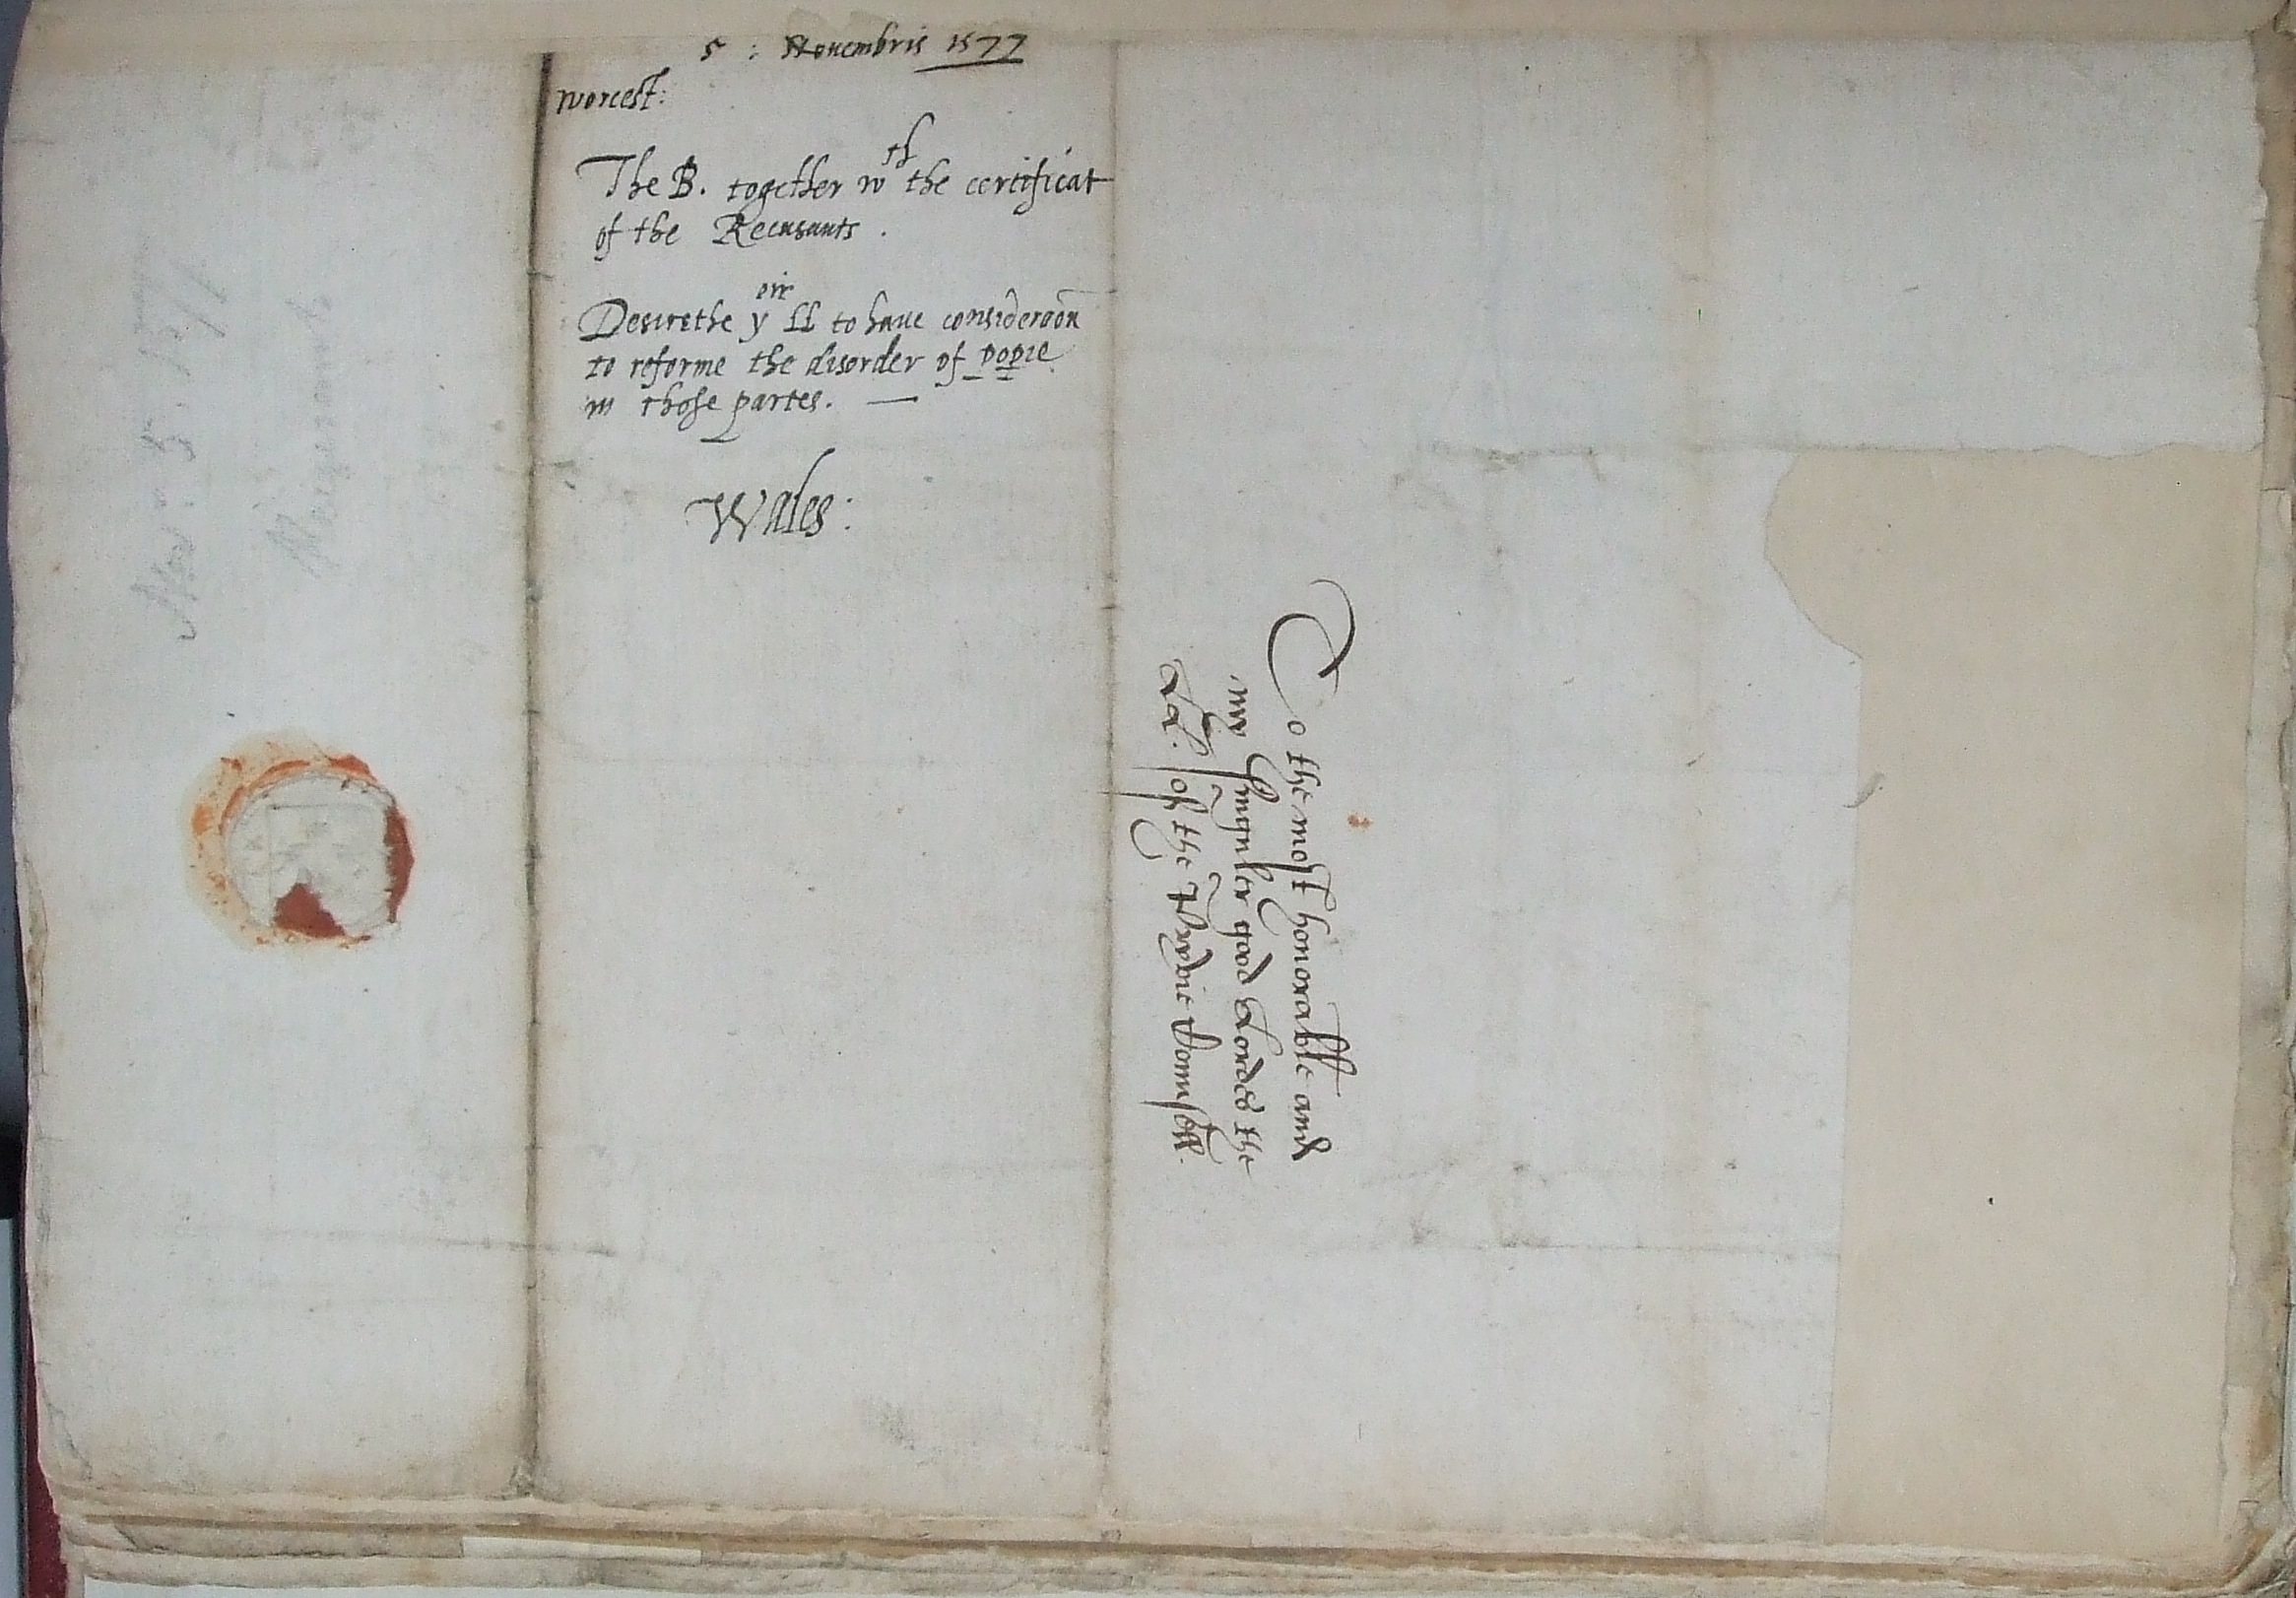 5 : Novembris 1577
Worcest:
The B. together wth the certificat
of the Recusants .
Desirethe yeir LL to have consideraon
to reforme the disorder of popie
in those partes. —
Wales:
To the most honorable and
my singuler good Lordes the
LL. of the Pryvie Counsell.
Nov. 5. 1577